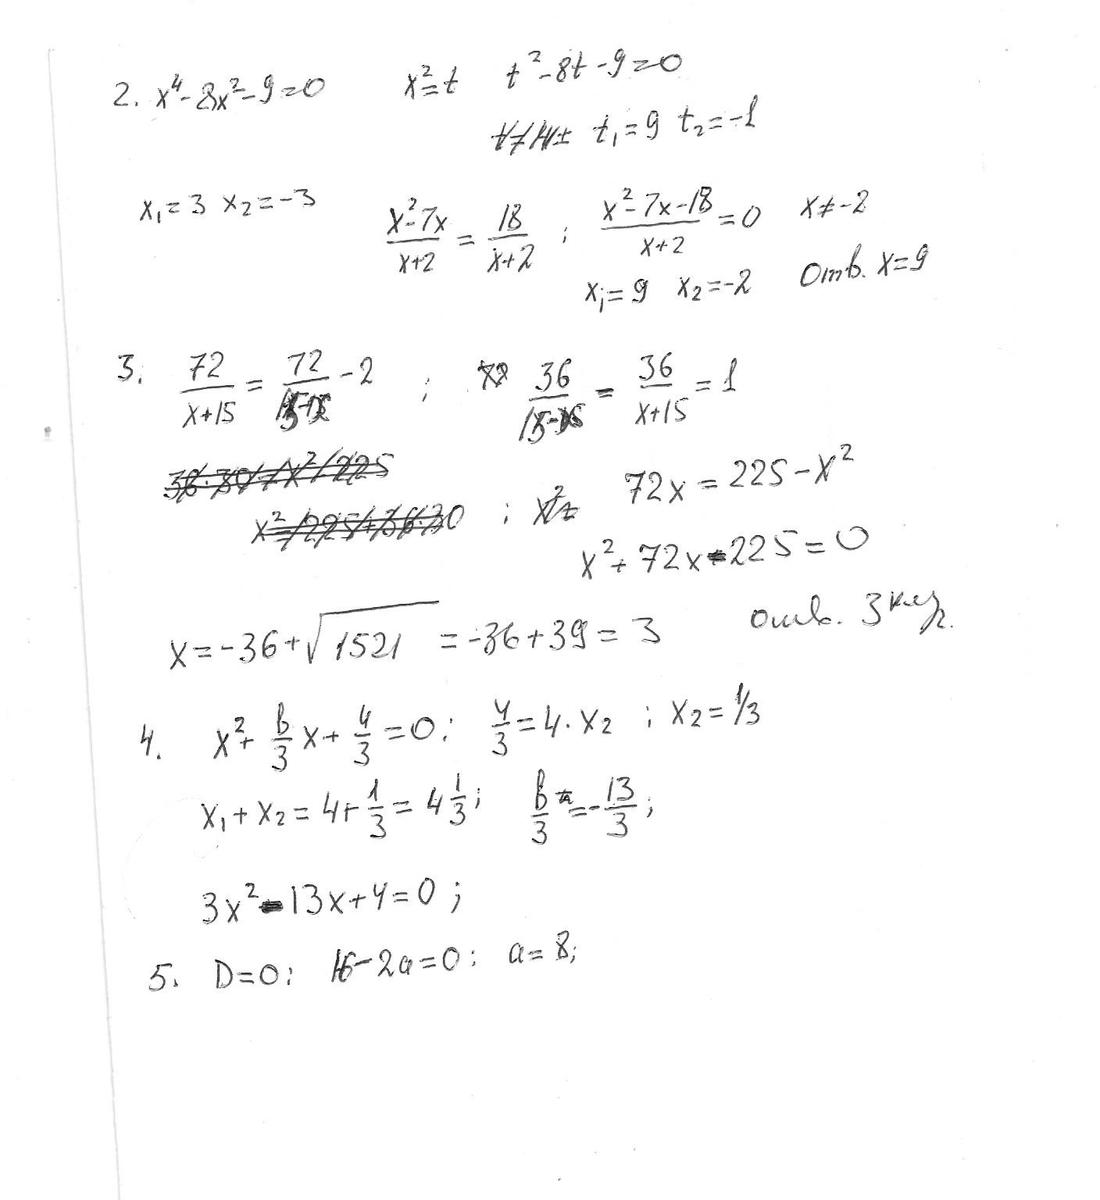 2. x⁴-8x²-9=0 x²=t t²-8t-9=0
t₁=9 t₂=-1
x₁=3 x₂=-3
(x²-7x)/(x+2) = 18/(x+2) ; (x²-7x-18)/(x+2) =0 x≠-2
x₁=9 x₂=-2 Отв. x=9
3. 72/(x+15) = 72/(15-x) -2 ; 36/(15-x) - 36/(x+15) = 1
72x = 225-x²
x²+72x-225=0
x=-36+√1521 =-36+39=3 отв. 3
4. x²+ b/3 x+ 4/3 =0; 4/3 =4·x₂ ; x₂=1/3
x₁+x₂= 4+ 1/3 = 4 1/3; b/3 =- 13/3 ;
3x²-13x+4=0 ;
5. D=0; 16-2a=0; a=8;